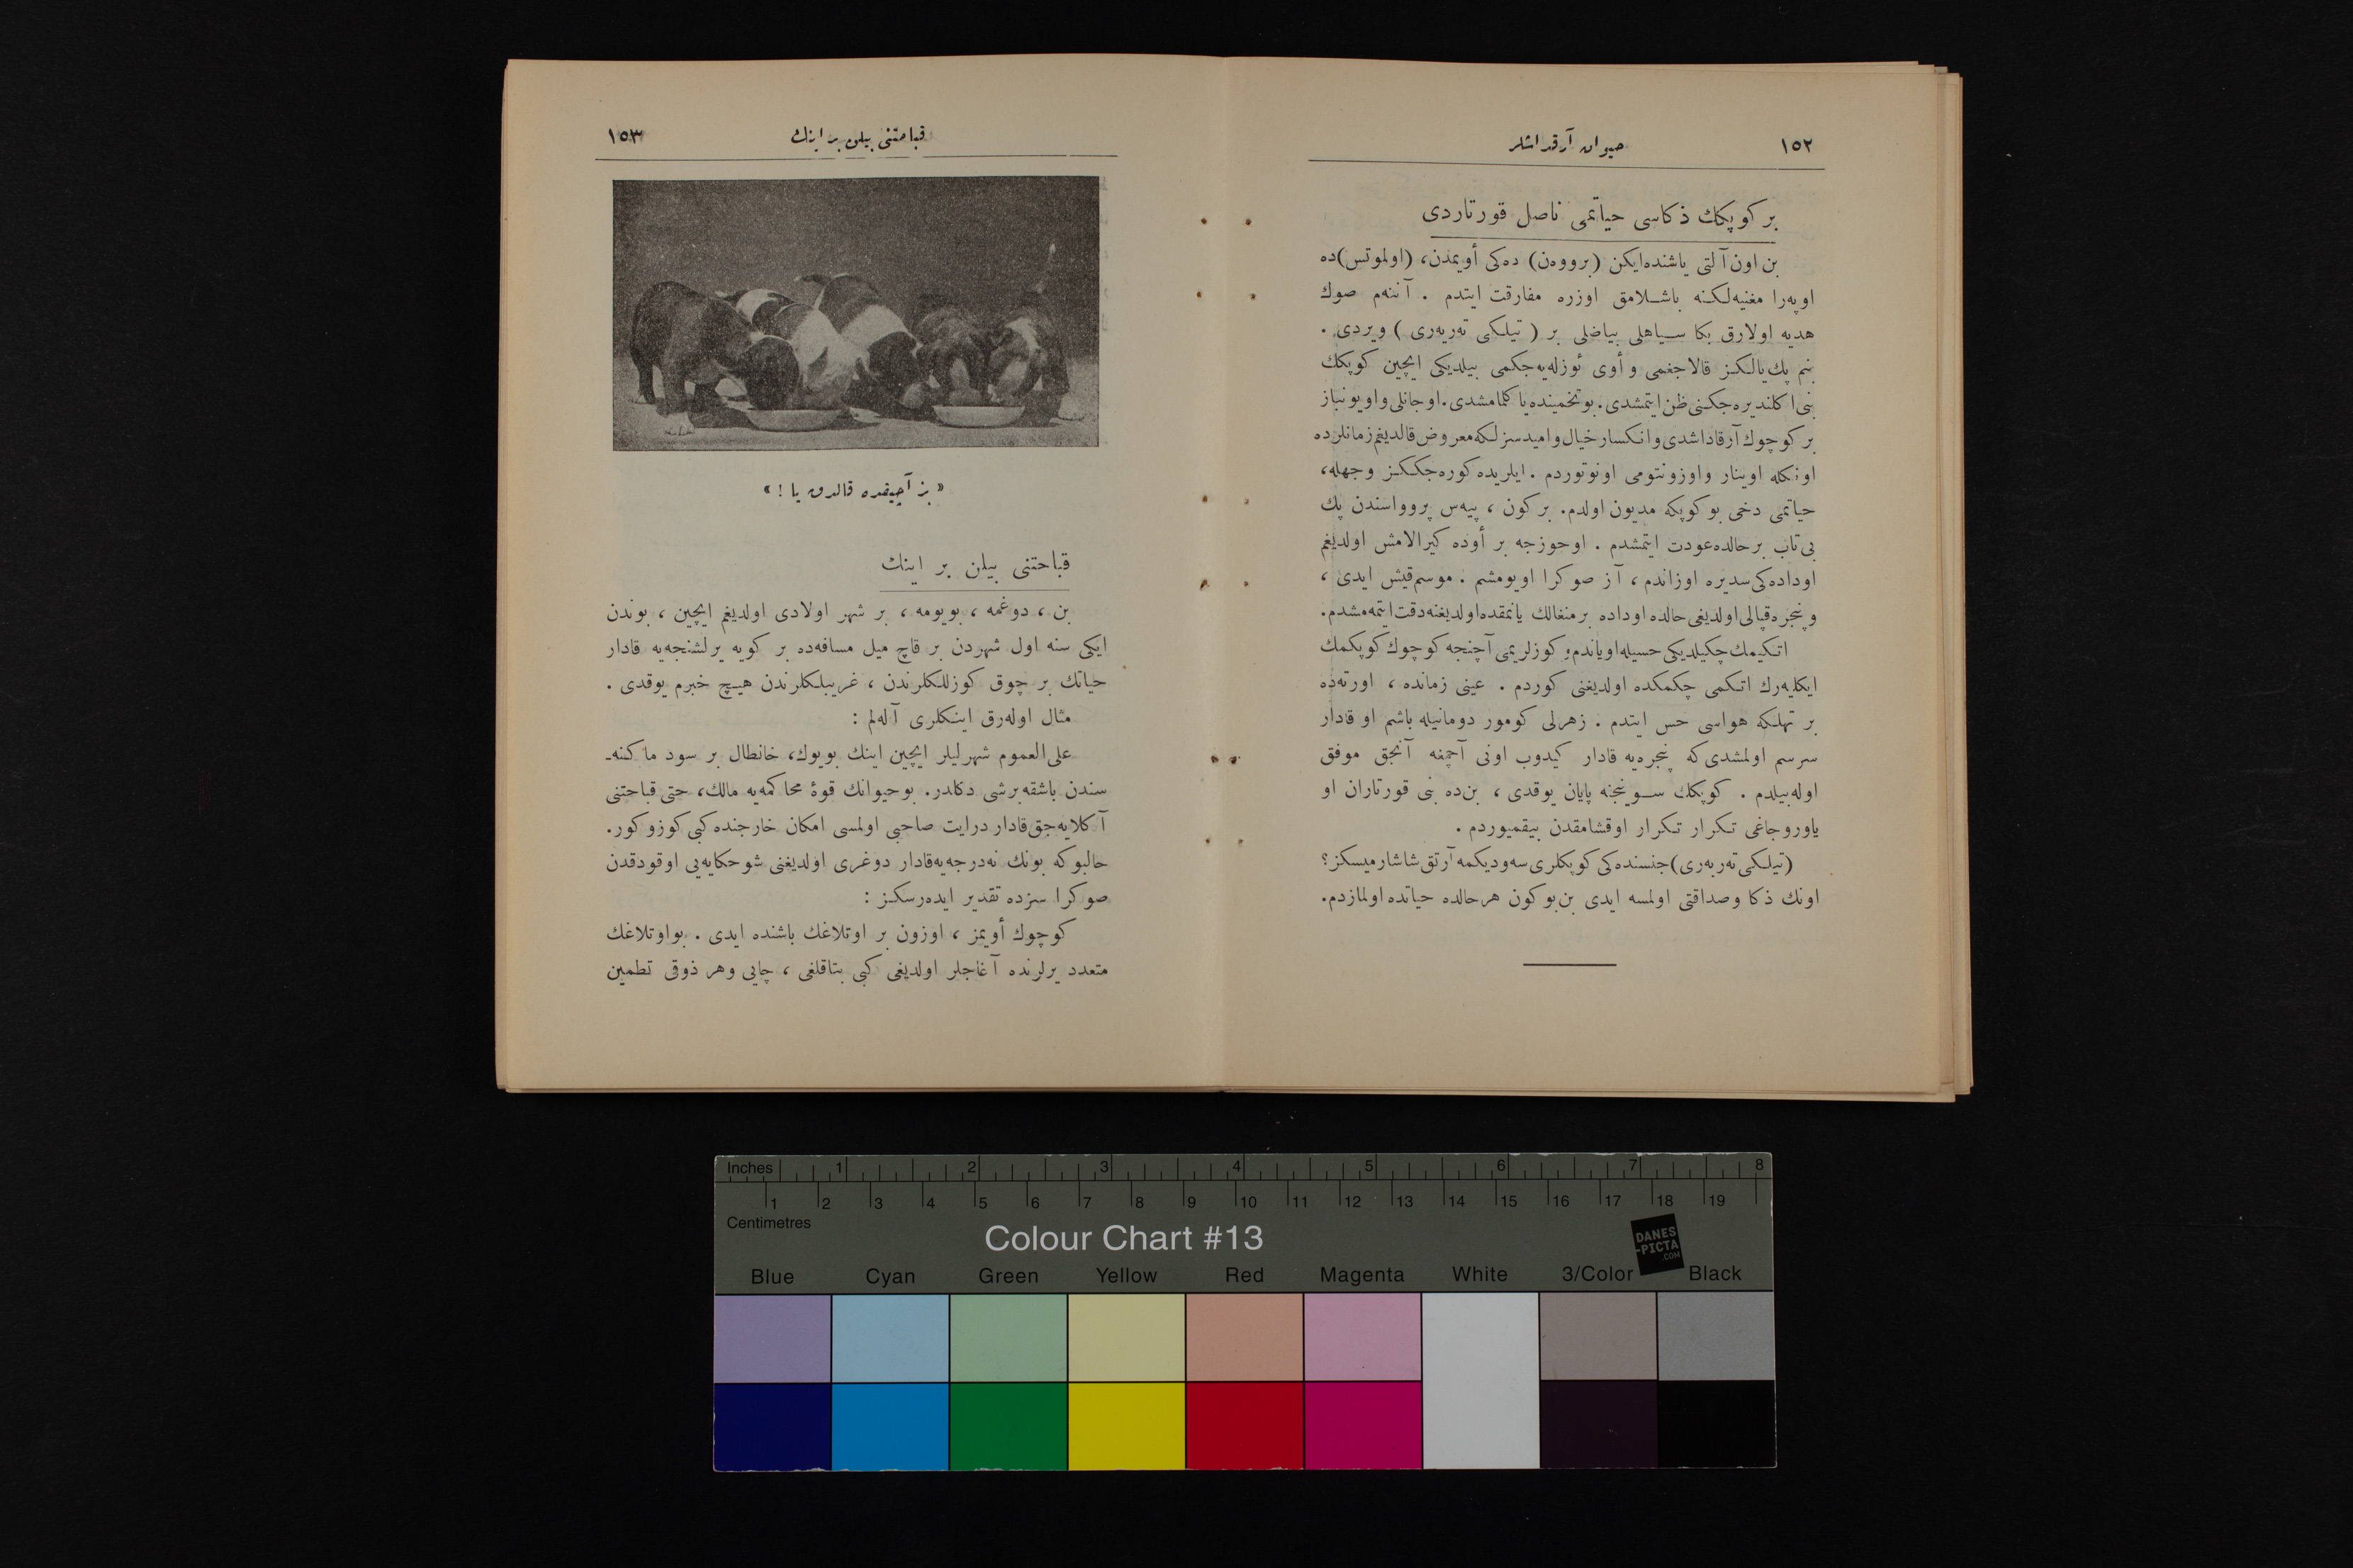 ١٥٢
حيوان آرقداشلر
بر كوپكك ذكاسى حياتمى ناصل قورتاردى
بن اون آلتى ياشنده ايكن (برووه‌ن) ده‌كى أويمدن، (اولموتس)ده
اوپه‌را مغنيه‌لكنه باشلامق اوزره مفارقت ايتدم . آننه‌م صوك
هديه اولارق بكا سياهلى بياضلى بر ( تيلكى ته‌ريه‌رى ) ويردى .
بنم پك يالكز قالاجغمى و أوى ئوزله‌يه‌جكمى بيلديكى ايچين كوپكك
بنى اكلنديره‌جكنى ظن ايتمشدى. بو تخمينده ياكلمامشدى. او جانلى و اويونباز
بر كوچوك آرقاداشدى و انكسار خيال و اميدسزلكه معروض قالديغم زمانلرده
اونكله اوينار و اوزونتومى اونوتوردم . ايلريده كوره‌جككز وجهله،
حياتمى دخى بو كوپكه مديون اولدم. بر كون ، پيه‌س پروواسندن پك
بى تاب بر حالده عودت ايتمشدم . اوجوزجه بر أوده كيرالامش اولديغم
اوداده‌كى سديره اوزاندم ، آز صوكرا اويومشم . موسم قيش ايدى ،
و پنجره قپالى اولديغى حالده اوداده بر منغالك يانمقده اولديغنه دقت ايتمه‌مشدم.
اتكيمك چكيلديكى حسيله اوياندم و كوزلريمى آچنجه كوچوك كوپكمك
ايكليه‌رك اتكمى چكمكده اولديغنى كوردم . عينى زمانده ، اورته‌ده
بر تهلكه هواسى حس ايتدم . زهرلى كومور دومانيله باشم او قادار
سرسم اولمشدى كه پنجره‌يه قادار كيدوب اونى آچمغه آنجق موفق
اوله‌بيلدم . كوپكك سوينجنه پايان يوقدى ، بن‌ده بنى قورتاران او
ياوروجاغى تكرار تكرار اوقشامقدن بيقميوردم .
(تيلكى ته‌ريه‌رى) جنسنده‌كى كوپكلرى سه‌وديكمه آرتق شاشارميسكز ؟
اونك ذكا و صداقتى اولمسه ايدى بن بو كون هر حالده حياتده اولمازدم.
١٥٣
قباحتنى بيلن بر اينك
« بز آچيقده قالدق يا ! »
قباحتنى بيلن بر اينك
بن ، دوغمه ، بويومه ، بر شهر اولادى اولديغم ايچين ، بوندن
ايكى سنه اول شهردن بر قاچ ميل مسافه‌ده بر كويه يرلشنجه‌يه قادار
حياتك بر چوق كوزللكلرندن ، غريبلكلرندن هيچ خبرم يوقدى .
مثال اوله‌رق اينكلرى آله‌لم :
على العموم شهرليلر ايچين اينك بويوك، خانطال بر سود ماكنه‌ـ
سندن باشقه بر شى دكلدر. بو حيوانك قوۀ محاكمه‌يه مالك، حتى قباحتنى
آكلايه‌جق قادار درايت صاحبى اولمسى امكان خارجنده كبى كوزوكور.
حالبوكه بونك نه‌درجه‌يه قادار دوغرى اولديغنى شو حكايه‌يى اوقودقدن
صوكرا سزده تقدير ايده‌رسكز :
كوچوك أويمز ، اوزون بر اوتلاغك باشنده ايدى . بو اوتلاغك
متعدد يرلرنده آغاجلر اولديغى كبى بتاقلغى ، چايى و هر ذوقى تطمين
Inches 1 2 3 4 5 6 7 8
1 2 3 4 5 6 7 8 9 10 11 12 13 14 15 16 17 18 19
Centimetres
Colour Chart #13
DANES
-PICTA
.COM
Blue Cyan Green Yellow Red Magenta White 3/Color Black